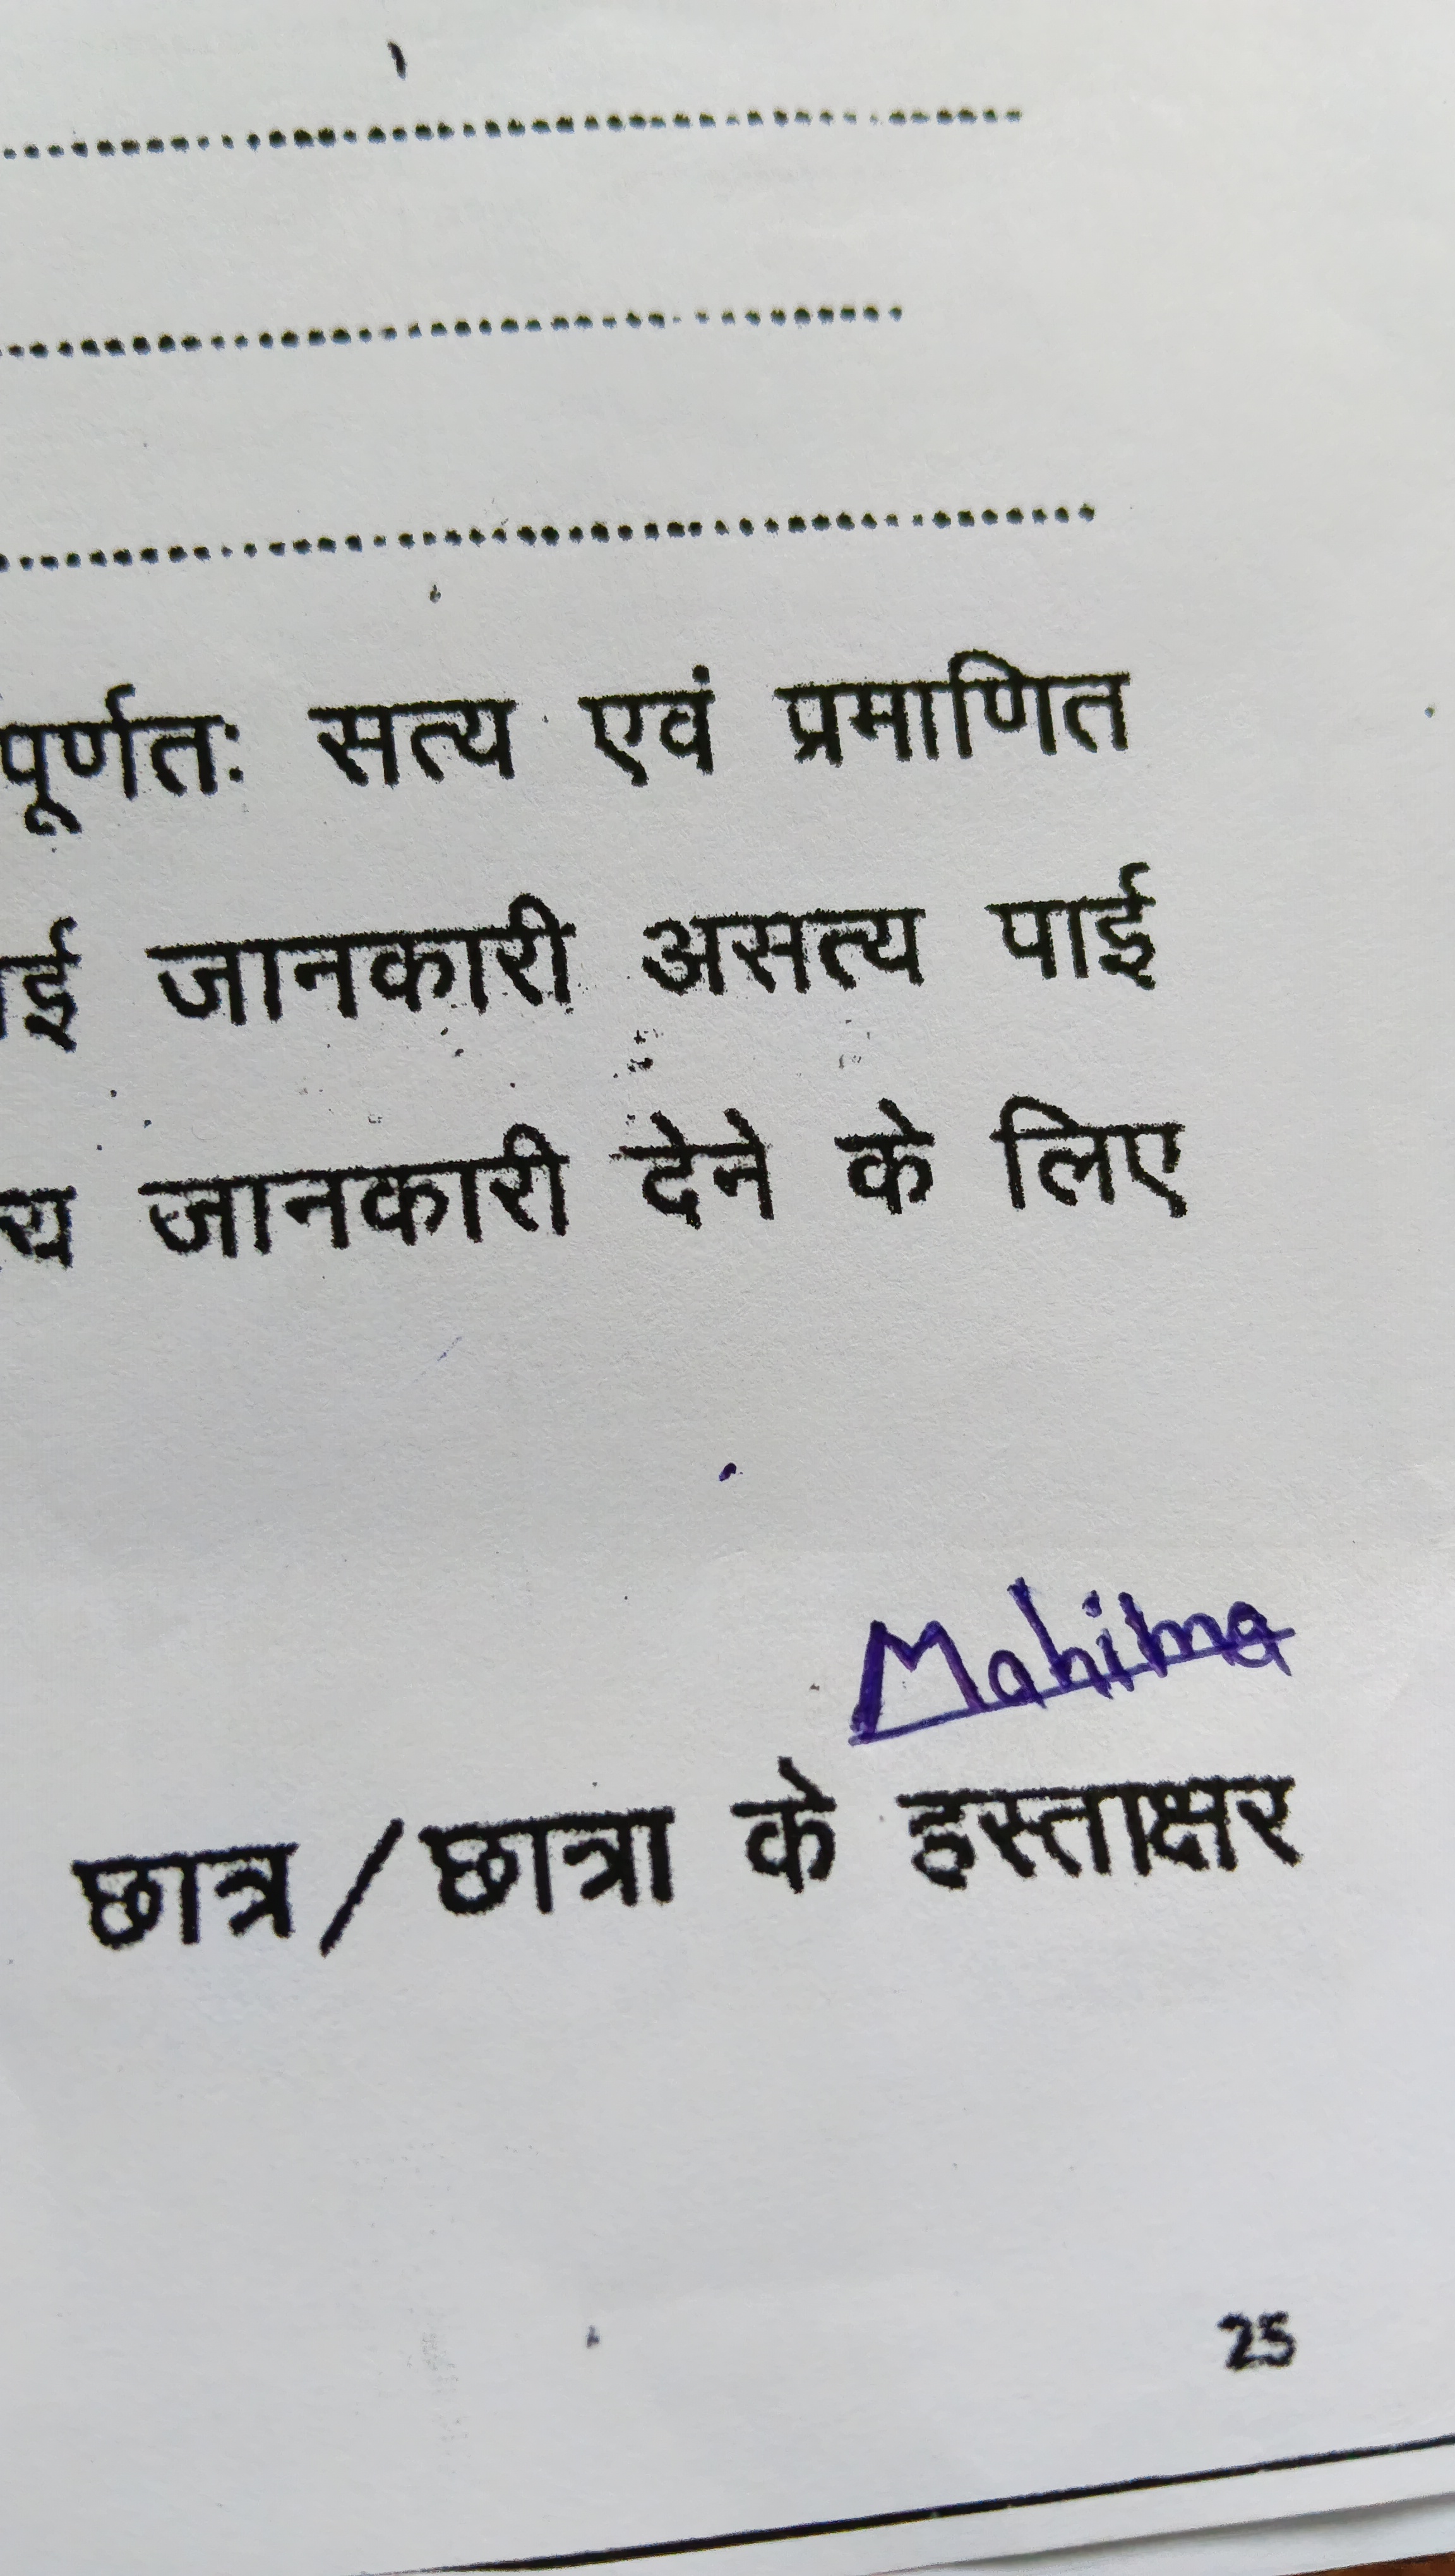 पूर्णतः सत्य एवं प्रमाणित
जानकारी असत्य पाई
जानकारी देने के लिए
Mahima
छात्र/छात्रा के हस्ताक्षर
25